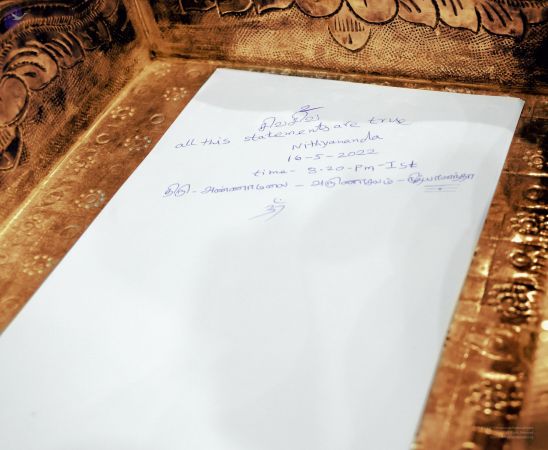 உ
சிவசிவ
all this statements are true
Nithyananda
16-5-2022
time - 8-20-Pm-Ist
திரு - அண்ணாமலை - அருணாசலம் -